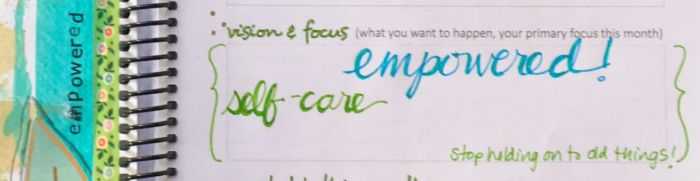 empowered
vision & focus (what you want to happen, your primary focus this month)
empowered!
self-care
Stop holding on to old things!